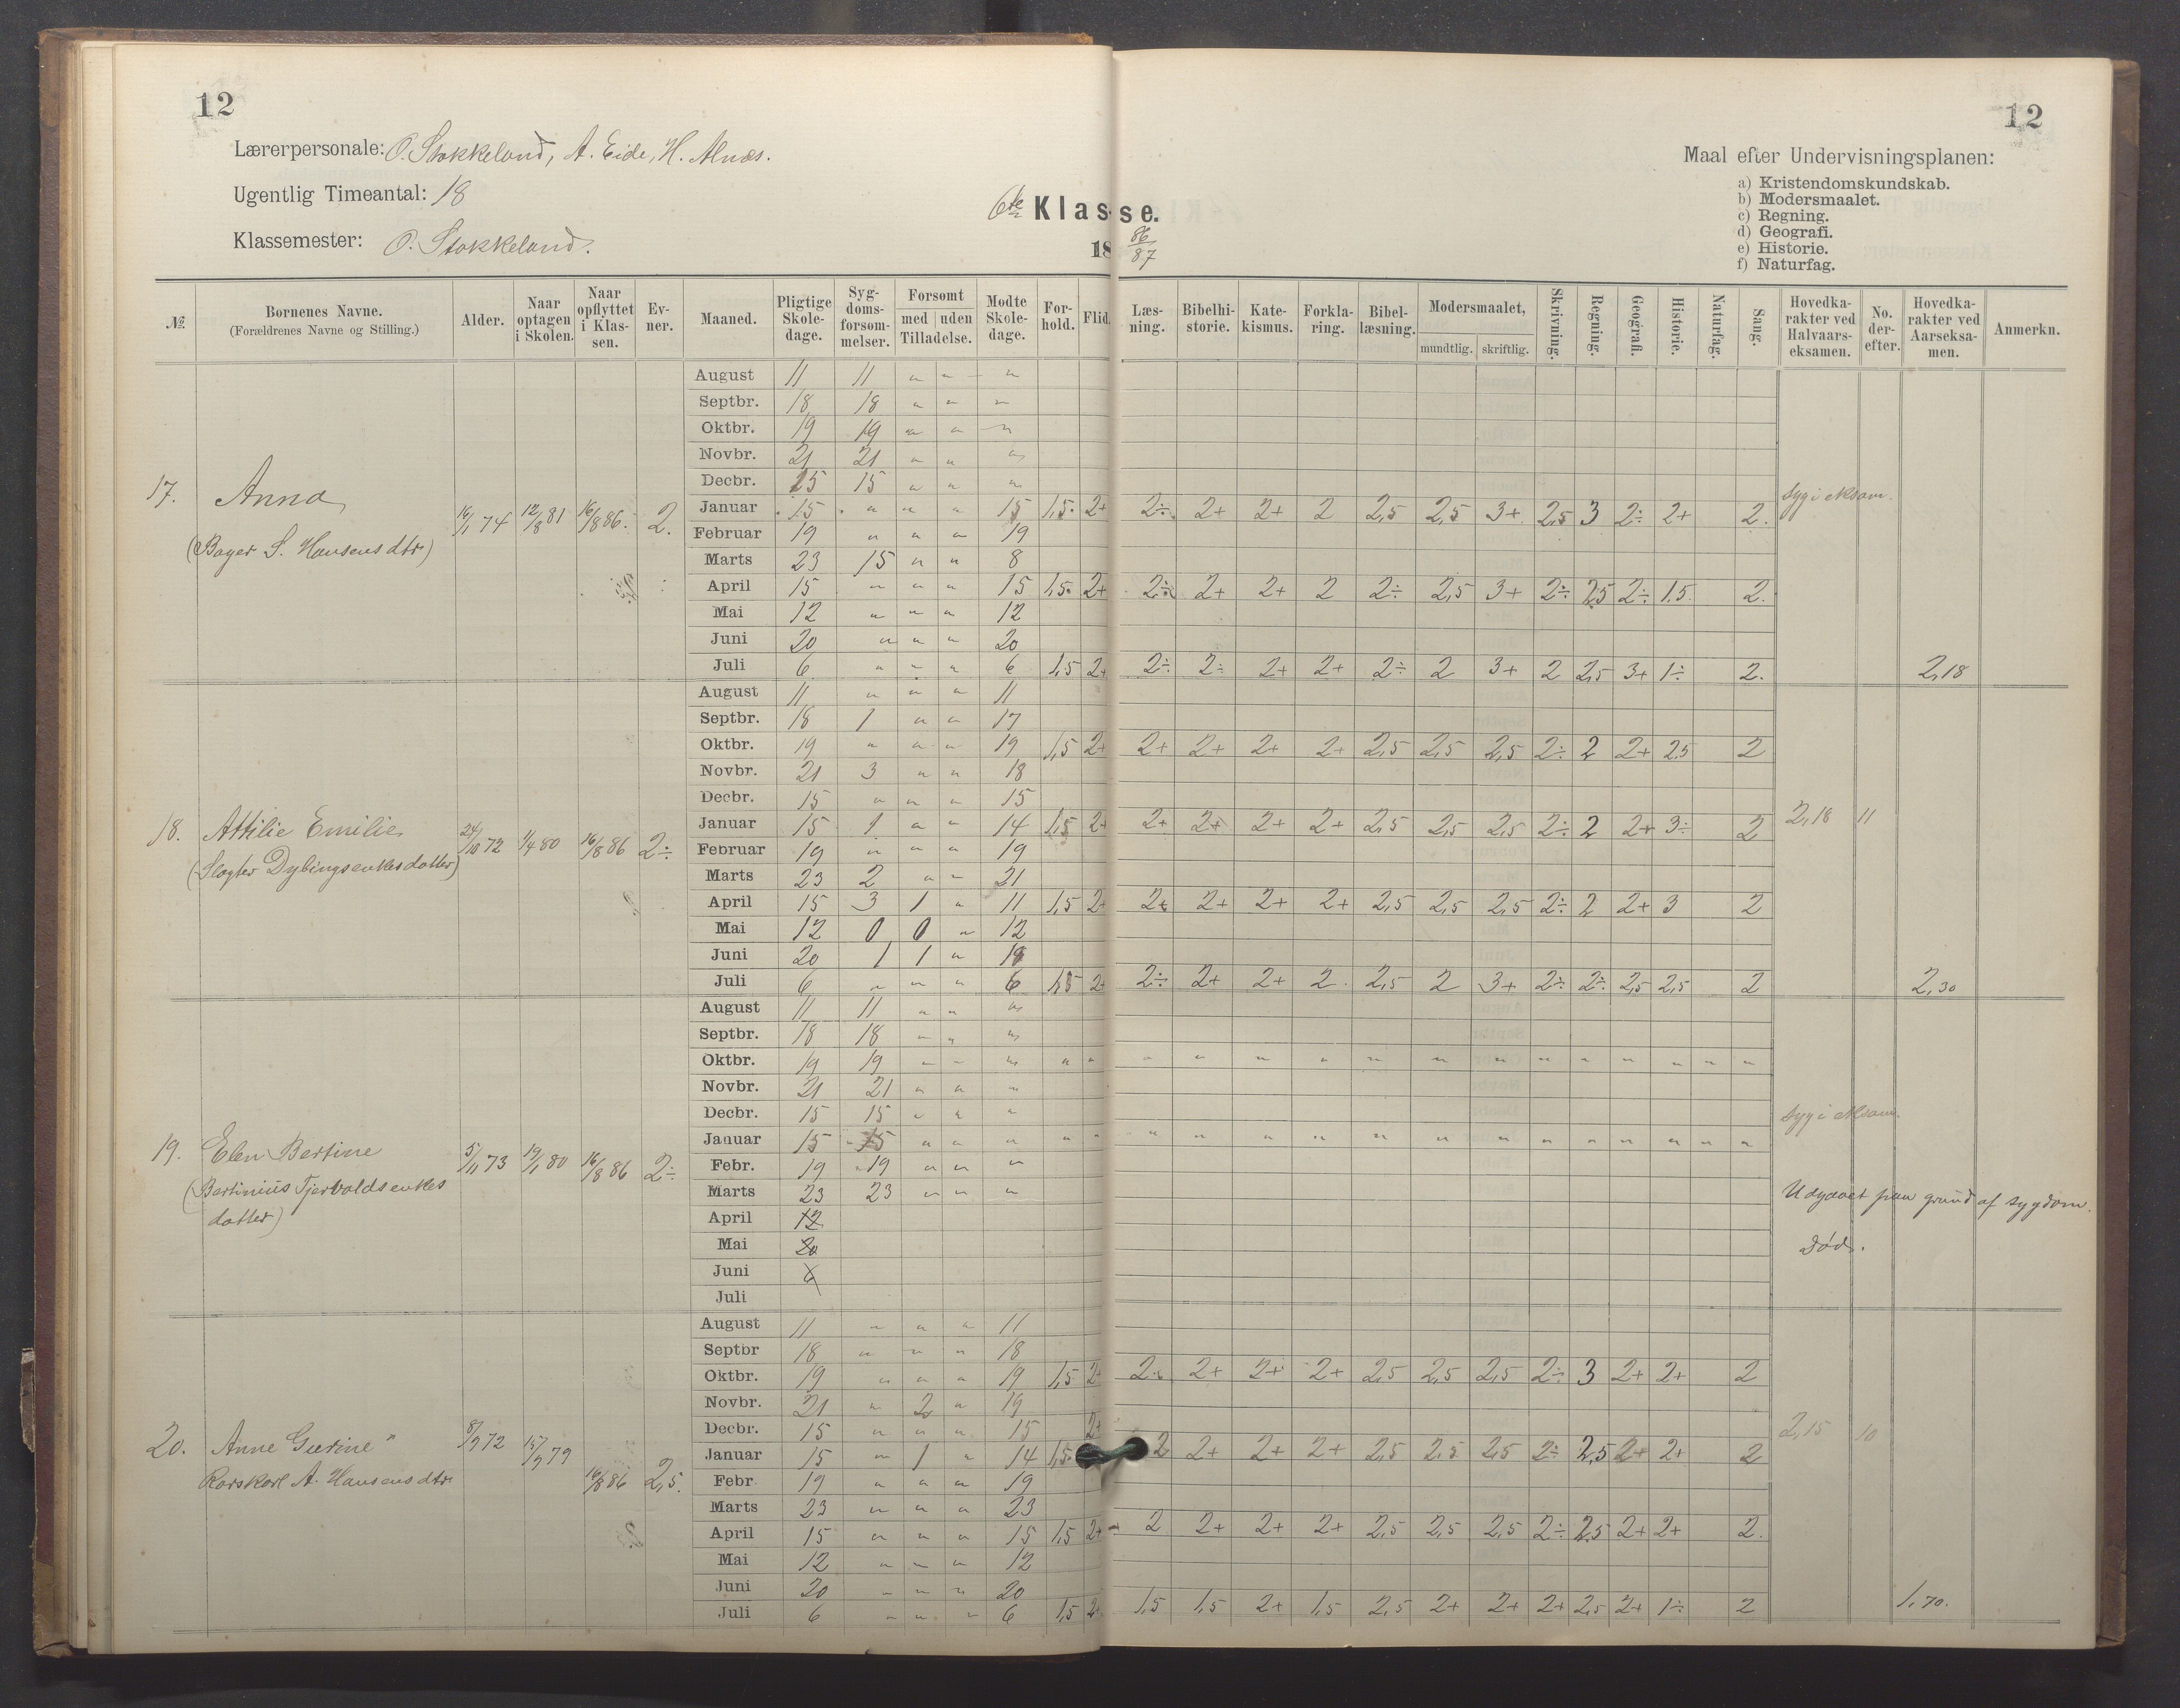 12
12
Lærerpersonale: O. Stokkeland, A. Eide, H. Alnæs.
Ugentlig Timeantal: 18
Klassemester: O. Stokkeland.
6te Klasse.
18 86/87
Maal efter Undervisningsplanen:
a) Kristendomskundskab.
b) Modersmaalet.
c) Regning.
d) Geografi.
e) Historie.
f) Naturfag.
№ Børnenes Navne. (Forældrenes Navne og Stilling.) Alder. Naar optagen i Skolen. Naar opflyttet i Klassen. Evner. Maaned. Pligtige Skoledage. Sygdomsforsømmelser. Forsømt med uden Tilladelse. Mødte Skoledage. Forhold. Flid. Læsning. Bibelhistorie. Katekismus. Forklaring. Bibellæsning. Modersmaalet, mundtlig. skriftlig. Skrivning. Regning. Geografi. Historie. Naturfag. Sang. Hovedkarakter ved Halvaarseksamen. No. derefter. Hovedkarakter ved Aarseksamen. Anmerkn.
17. Anna
(Bager S. Hansens dtr)
16/1 74 12/8 81 16/8 86. 2.
August 11 11 " " "
Septbr. 18 18 " " "
Oktbr. 19 19 " " "
Novbr. 21 21 " " "
Decbr. 15 15 " " "
Januar 15 " " " 15 1,5 2+ 2÷ 2+ 2+ 2 2,5 2,5 3+ 2,5 3 2÷ 2+ 2. Syg i eksam.
Februar 19 " " " 19
Marts 23 15 " " 8
April 15 " " " 15 1,5 2+ 2÷ 2+ 2+ 2 2÷ 2,5 3+ 2÷ 2,5 2÷ 1,5 2.
Mai 12 " " " 12
Juni 20 " " " 20
Juli 6 " " " 6 1,5 2+ 2÷ 2÷ 2+ 2+ 2÷ 2 3+ 2 2,5 3+ 1÷ 2. 2,18
18. Attilie Emilie
(Slagter Dybings enkes datter)
24/10 72 1/4 80 16/8 86 2÷
August 11 " " " 11
Septbr. 18 1 " " 17
Oktbr. 19 " " " 19 1,5 2+ 2+ 2+ 2+ 2+ 2,5 2,5 2,5 2÷ 2 2+ 2,5 2
Novbr. 21 3 " " 18
Decbr. 15 " " " 15
Januar 15 1 " " 14 1,5 2+ 2+ 2+ 2+ 2+ 2,5 2,5 2,5 2÷ 2 2+ 3÷ 2 2,18 11
Februar 19 " " " 19
Marts 23 2 " " 21
April 15 3 1 " 11 1,5 2+ 2+ 2+ 2+ 2+ 2,5 2,5 2,5 2÷ 2 2+ 3 2
Mai 12 0 0 " 12
Juni 20 1 1 " 18
Juli 6 " " " 6 1,5 2+ 2÷ 2+ 2+ 2 2,5 2 3+ 2÷ 2÷ 2,5 2,5 2 2,30
19. Elen Bertine
(Bertinius Tjervolds enkes
datter)
5/11 73 19/1 80 16/8 86 2÷
August 11 11 " " "
Septbr. 18 18 " " "
Oktbr. 19 19 " " " " " " " " " " " " " " " " " "
Novbr. 21 21 " " "
Decbr. 15 15 " " " Syg i eksam.
Januar 15 15 " " " " " " " " " " " " " " " " " "
Febr. 19 19 " " "
Marts 23 23 " " " Udgaaet paa grund af sygdom.
April 12
Mai 20 Død.
Juni 6
Juli
20. Anne Gurine
Karskarl A. Hansens dtr.
8/9 72 15/9 79 16/8 86 2,5.
August 11 " " " 11
Septbr 18 " " " 18
Oktbr. 19 " " " 19 1,5 2+ 2÷ 2+ 2+ 2+ 2,5 2,5 2,5 2÷ 3 2+ 2+ 2
Novbr. 21 " 2 " 19
Decbr. 15 " " " 15 2+
Januar 15 " 1 " 14 1,5 2 2+ 2+ 2+ 2,5 2,5 2,5 2÷ 2,5 2+ 2+ 2 2,15 10
Febr 19 " " " 19
Marts 23 " " " 23
April 15 " " " 15 1,5 2+ 2 2+ 2+ 2+ 2,5 2,5 2,5 2÷ 2,5 2+ 2+ 2.
Mai 12 " " " 12
Juni 20 " " " 20
Juli 6 " " " 6 1,5 2+ 1,5 1,5 2+ 1,5 2,5 2+ 2+ 2+ 2,5 2+ 1÷ 2 1,70.